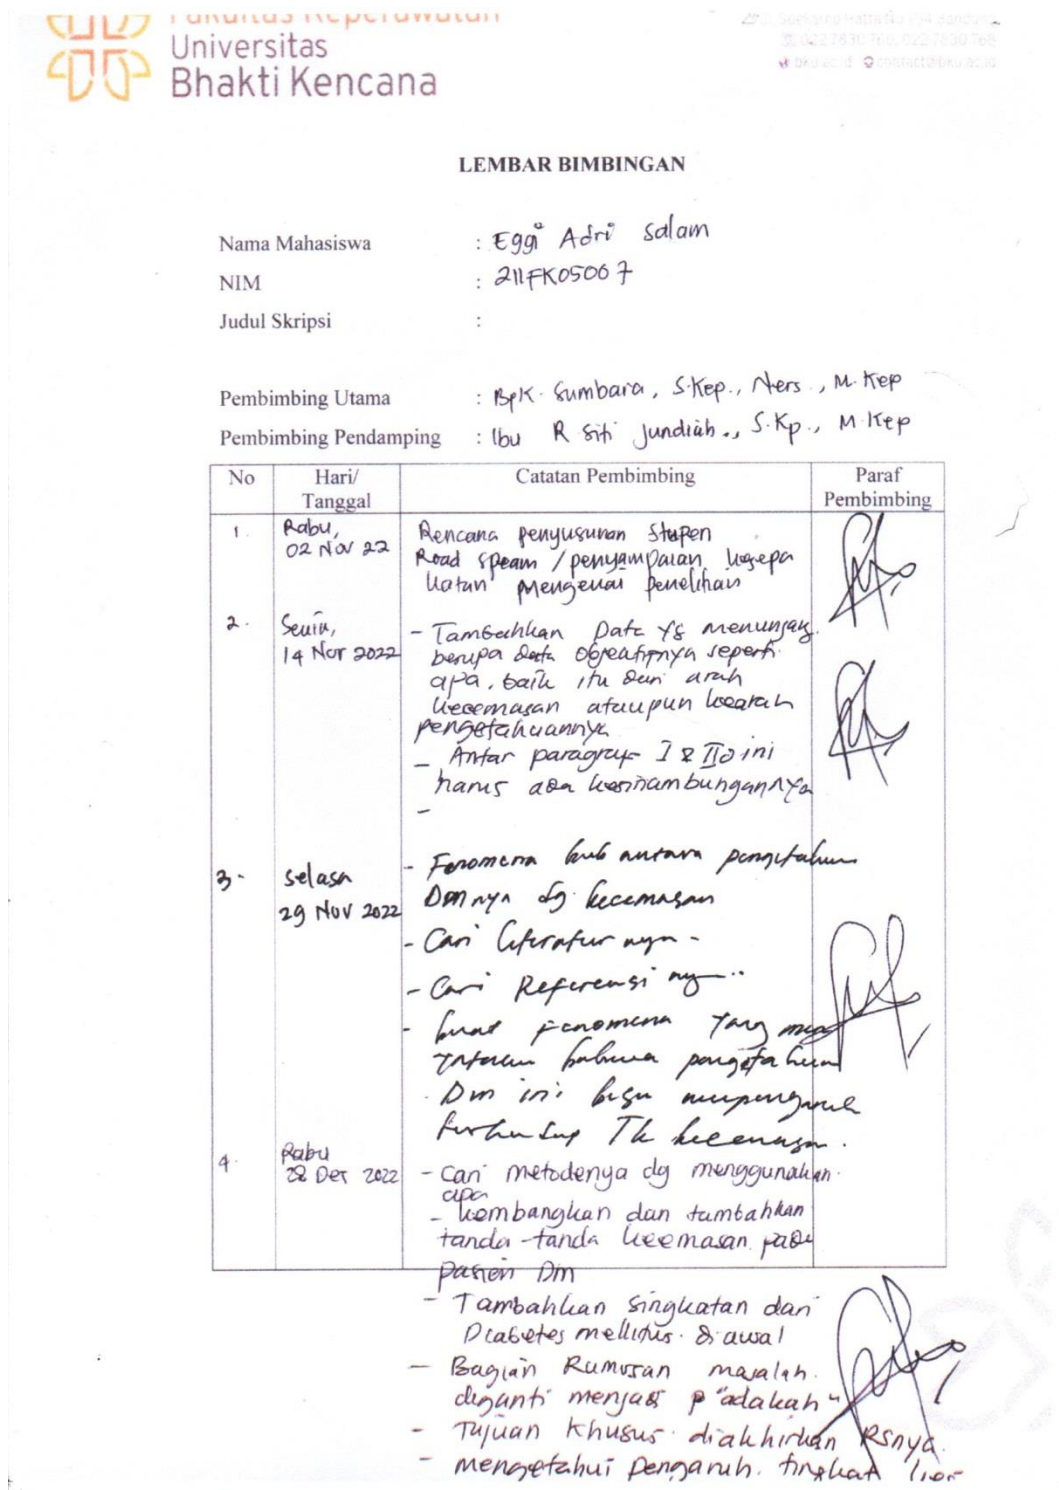 Fakultas Keperawatan
Universitas
Bhakti Kencana
Bandung
022 7830 760, 022 7830 768
bku.ac.id contact@bku.ac.id
LEMBAR BIMBINGAN
Nama Mahasiswa : Eggi Adri Salam
NIM : 211FK05007
Judul Skripsi :
Pembimbing Utama : Bpk. Sumbara, S.Kep., Ners., M.Kep
Pembimbing Pendamping : Ibu R Siti Jundiah., S.Kp., M.Kep
No Hari/ Tanggal Catatan Pembimbing Paraf Pembimbing
1. Rabu, 02 Nov 22
Rencana penyusunan
Road /penyampaian kesepa
katan mengenai penelitian
2. Senin, 14 Nov 2022
- Tambahkan Data yg menunjang
berupa data objectifnya seperti
apa, baik itu dari arah
kecemasan ataupun kearah
pengetahuannya
- Antar paragraf I & II ini
harus ada kesinambungannya
-
3. Selasa 29 Nov 2022
- Fenomena hub antara pengetahuan
DM nya dg kecemasan
- Cari literatur nya -
- Cari Referensi nya..
- buat fenomena yang meny
bahwa pengetahuan
DM ini bisa
terhadap Tk kecemasan.
4. Rabu 28 Des 2022
- Cari metodenya dg menggunakan
apa
- kembangkan dan tambahkan
tanda-tanda kecemasan pada
pasien DM
- Tambahkan singkatan dari
Diabetes mellitus di awal
- Bagian Rumusan masalah
diganti menjadi "adakah"
- Tujuan Khusus diakhirkan RSnya.
- mengetahui pengaruh tingkat